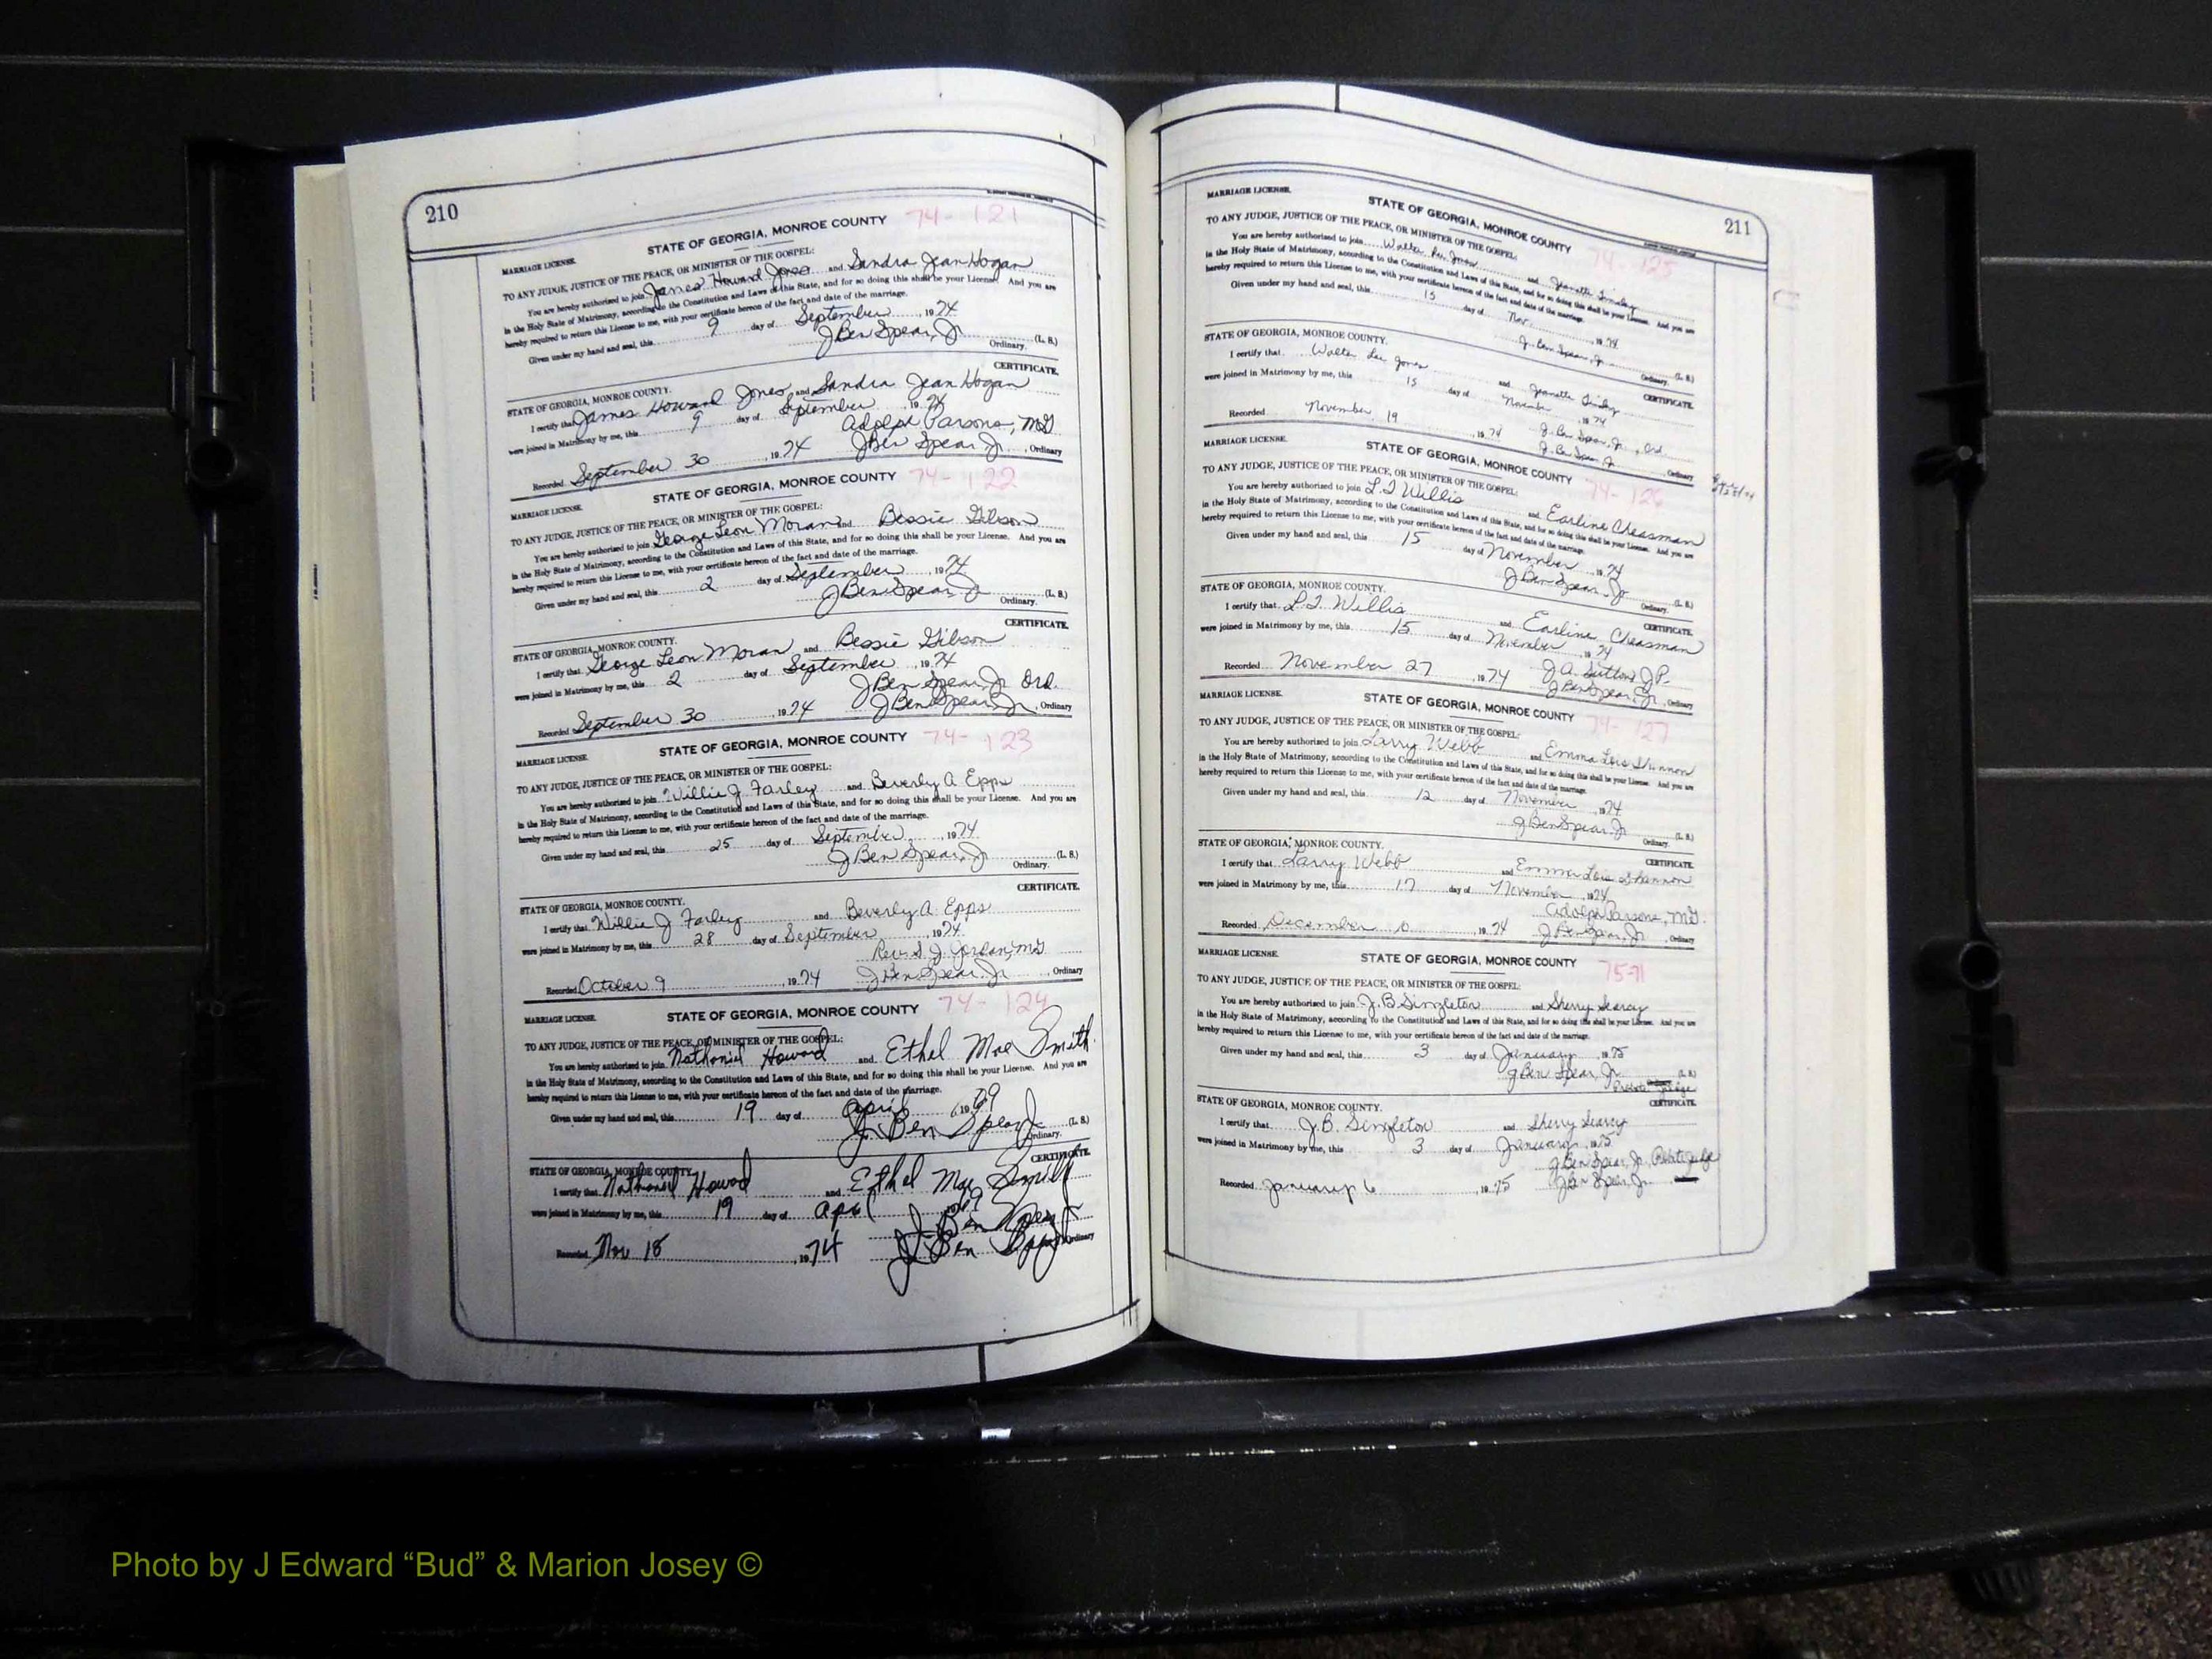 210
74-121
STATE OF GEORGIA, MONROE COUNTY
MARRIAGE LICENSE.
TO ANY JUDGE, JUSTICE OF THE PEACE, OR MINISTER OF THE GOSPEL:
You are hereby authorized to join James Howard Jones and Sandra Jean Hogan
in the Holy State of Matrimony, according to the Constitution and Laws of this State, and for so doing this shall be your License. And you are
hereby required to return this License to me, with your certificate hereon of the fact and date of the marriage.
Given under my hand and seal, this 9 day of September, 1974
J Ben Spear, Jr (L. S.)
Ordinary.
CERTIFICATE.
STATE OF GEORGIA, MONROE COUNTY.
I certify that James Howard Jones and Sandra Jean Hogan
were joined in Matrimony by me, this 9 day of September, 1974
Adolph Parsons, MG
Recorded September 30, 1974 J Ben Spear, Jr., Ordinary
74-122
STATE OF GEORGIA, MONROE COUNTY
MARRIAGE LICENSE.
TO ANY JUDGE, JUSTICE OF THE PEACE, OR MINISTER OF THE GOSPEL:
You are hereby authorized to join George Leon Moran and Bessie Gibson
in the Holy State of Matrimony, according to the Constitution and Laws of this State, and for so doing this shall be your License. And you are
hereby required to return this License to me, with your certificate hereon of the fact and date of the marriage.
Given under my hand and seal, this 2 day of September, 1974
J Ben Spear, Jr (L. S.)
Ordinary.
CERTIFICATE.
STATE OF GEORGIA, MONROE COUNTY.
I certify that George Leon Moran and Bessie Gibson
were joined in Matrimony by me, this 2 day of September, 1974
J Ben Spear, Jr Ord.
Recorded September 30, 1974 J Ben Spear, Jr, Ordinary
74-123
STATE OF GEORGIA, MONROE COUNTY
MARRIAGE LICENSE.
TO ANY JUDGE, JUSTICE OF THE PEACE, OR MINISTER OF THE GOSPEL:
You are hereby authorized to join Willie J Farley and Beverly A Epps
in the Holy State of Matrimony, according to the Constitution and Laws of this State, and for so doing this shall be your License. And you are
hereby required to return this License to me, with your certificate hereon of the fact and date of the marriage.
Given under my hand and seal, this 25 day of September, 1974
J Ben Spear, Jr (L. S.)
Ordinary.
CERTIFICATE.
STATE OF GEORGIA, MONROE COUNTY.
I certify that Willie J Farley and Beverly A. Epps
were joined in Matrimony by me, this 28 day of September, 1974
Rev. S. J. Jordan, MG
Recorded October 9, 1974 J Ben Spear, Jr, Ordinary
74-124
STATE OF GEORGIA, MONROE COUNTY
MARRIAGE LICENSE.
TO ANY JUDGE, JUSTICE OF THE PEACE, OR MINISTER OF THE GOSPEL:
You are hereby authorized to join Nathaniel Howard and Ethel Mae Smith
in the Holy State of Matrimony, according to the Constitution and Laws of this State, and for so doing this shall be your License. And you are
hereby required to return this License to me, with your certificate hereon of the fact and date of the marriage.
Given under my hand and seal, this 19 day of April, 1969
J. Ben Spear Jr (L. S.)
Ordinary.
CERTIFICATE.
STATE OF GEORGIA, MONROE COUNTY.
I certify that Nathaniel Howard and Ethel Mae Smith
were joined in Matrimony by me, this 19 day of April 1969
J Ben Spear Jr
Recorded Nov 18, 1974 J Ben Spear Jr Ordinary
211
74-125
MARRIAGE LICENSE.
STATE OF GEORGIA, MONROE COUNTY
TO ANY JUDGE, JUSTICE OF THE PEACE, OR MINISTER OF THE GOSPEL:
You are hereby authorized to join Walter Lee Jones and Jeanette
in the Holy State of Matrimony, according to the Constitution and Laws of this State, and for so doing this shall be your License. And you are
hereby required to return this License to me, with your certificate hereon of the fact and date of the marriage.
Given under my hand and seal, this 15 day of Nov., 1974
J. Ben Spear, Jr. (L. S.)
Ordinary.
CERTIFICATE.
STATE OF GEORGIA, MONROE COUNTY.
I certify that Walter Lee Jones and Jeanette
were joined in Matrimony by me, this 15 day of November, 1974
J. Ben Spear, Jr., Ord.
Recorded November 19, 1974 J. Ben Spear Jr., Ordinary
74-126
MARRIAGE LICENSE.
STATE OF GEORGIA, MONROE COUNTY
TO ANY JUDGE, JUSTICE OF THE PEACE, OR MINISTER OF THE GOSPEL:
You are hereby authorized to join L. T. Willis and Earline Cheasman
in the Holy State of Matrimony, according to the Constitution and Laws of this State, and for so doing this shall be your License. And you are
hereby required to return this License to me, with your certificate hereon of the fact and date of the marriage.
Given under my hand and seal, this 15 day of November, 1974
J Ben Spear, Jr (L. S.)
Ordinary.
CERTIFICATE.
STATE OF GEORGIA, MONROE COUNTY.
I certify that L. T. Willis and Earline Cheasman
were joined in Matrimony by me, this 15 day of November, 1974
J. A. Sutton, J P.
Recorded November 27, 1974 J Ben Spear, Jr., Ordinary
74-127
MARRIAGE LICENSE.
STATE OF GEORGIA, MONROE COUNTY
TO ANY JUDGE, JUSTICE OF THE PEACE, OR MINISTER OF THE GOSPEL:
You are hereby authorized to join Larry Webb and Emma Lois Shannon
in the Holy State of Matrimony, according to the Constitution and Laws of this State, and for so doing this shall be your License. And you are
hereby required to return this License to me, with your certificate hereon of the fact and date of the marriage.
Given under my hand and seal, this 12 day of November, 1974
J Ben Spear, Jr (L. S.)
Ordinary.
CERTIFICATE.
STATE OF GEORGIA, MONROE COUNTY.
I certify that Larry Webb and Emma Lois Shannon
were joined in Matrimony by me, this 17 day of November, 1974
Adolph Parsons, MG.
Recorded December, 1974 J Ben Spear, Jr, Ordinary
MARRIAGE LICENSE.
STATE OF GEORGIA, MONROE COUNTY
TO ANY JUDGE, JUSTICE OF THE PEACE, OR MINISTER OF THE GOSPEL:
You are hereby authorized to join J. B. Singleton and Sherry Searcy
in the Holy State of Matrimony, according to the Constitution and Laws of this State, and for so doing this shall be your License. And you are
hereby required to return this License to me, with your certificate hereon of the fact and date of the marriage.
Given under my hand and seal, this 3 day of January, 1975
J Ben Spear, Jr. (L. S.)
Probate Judge
CERTIFICATE.
STATE OF GEORGIA, MONROE COUNTY.
I certify that J. B. Singleton and Sherry Searcy
were joined in Matrimony by me, this 3 day of January, 1975
J Ben Spear, Jr. Probate Judge
Recorded January 6, 1975 J Ben Spear, Jr.
Photo by J Edward “Bud” & Marion Josey ©